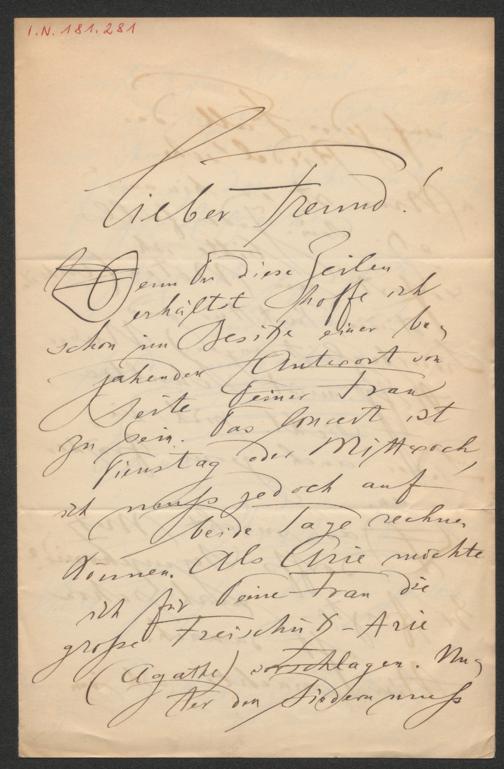 I.N. 181.281
Lieber Freund!
Wenn Du diese Zeilen
erhältst hoffe ich
schon im Besitze einer be-
jahenden Antwort von
Seite Deiner Frau
zu sein. Das Concert ist
Dienstag oder Mittwoch,
ich muß jedoch auf
beide Tage rechnen
können. Als Arie möchte
ich für Deine Frau die
große Freischütz-Arie
(Agathe) vorschlagen. Un-
ter den Liedern muß